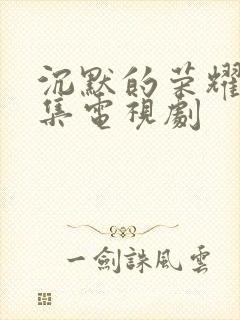 沉默的荣耀
集電視劇
一劍誅風雲